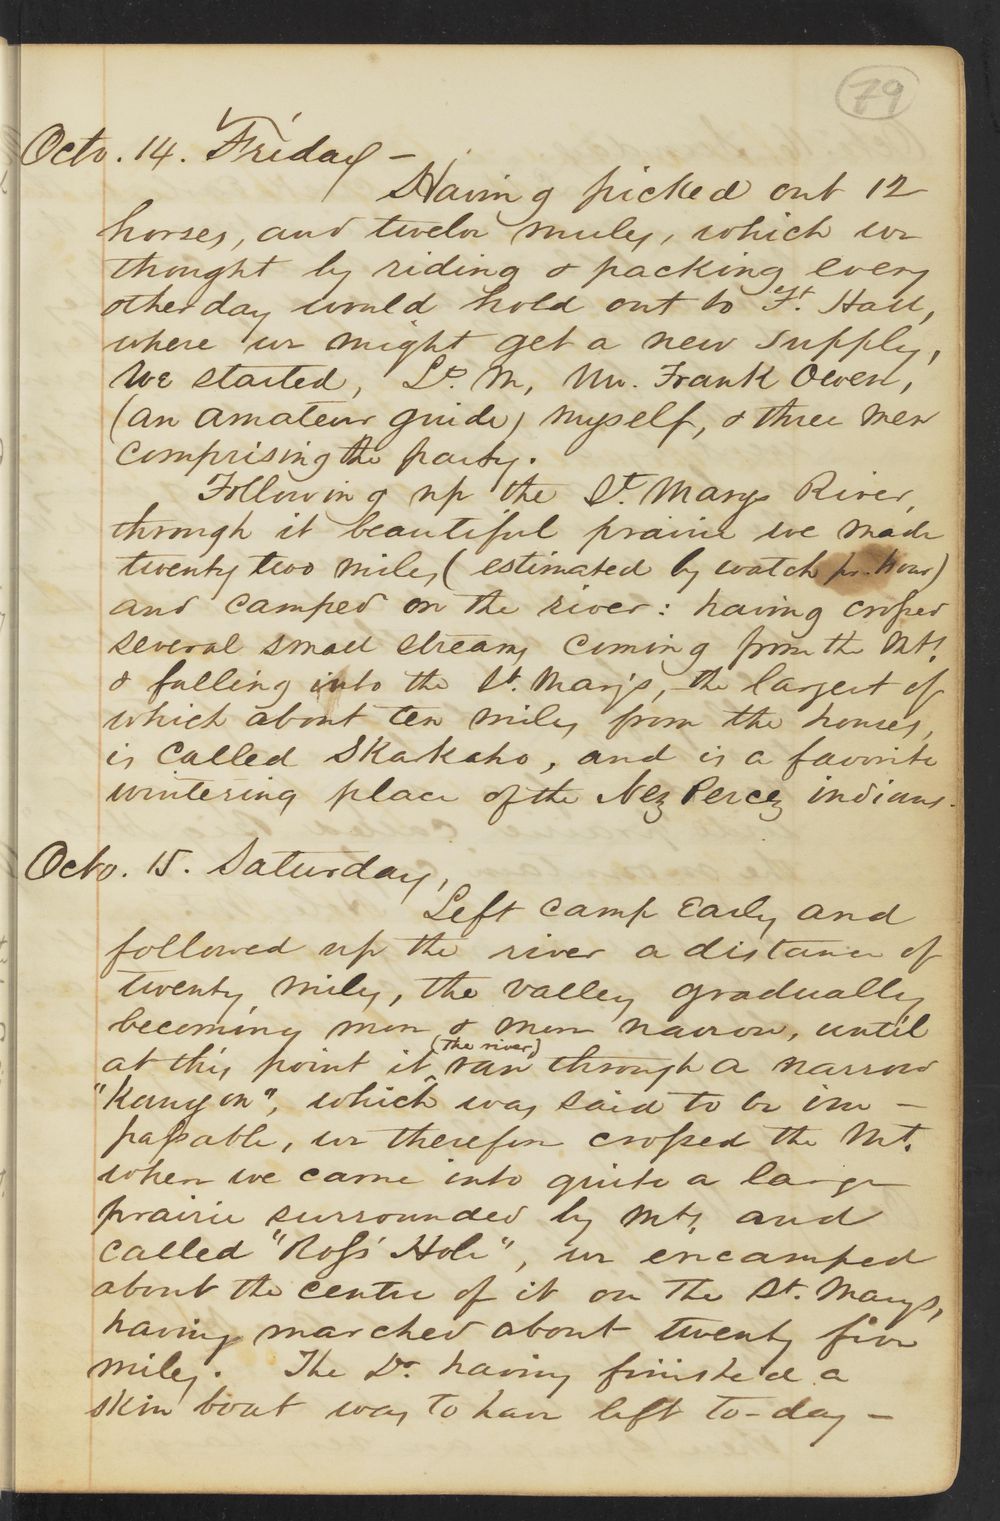 79
Octo. 14. Friday —
Having picked out 12
horses, and twelve mules, which we
thought by riding & packing every
other day would hold out to Ft. Hall,
where we might get a new supply,
We started, Lt. M, Mr. Frank Owen,
(an amateur guide) myself, & three men
comprising the party.
Following up the St. Marys River,
through it beautiful prairie we made
twenty two miles (estimated by watch pr. hour)
and camped on the river: having crossed
several small streams coming from the Mts.
& falling into the St. Mary's, the largest of
which about ten miles from the houses,
is called Skakaho, and is a favorite
wintering place of the Nez Percez indians.
Octo. 15. Saturday,
Left camp early and
followed up the river a distance of
twenty miles, the valley gradually
becoming more & more narrow, until
at this point it (the river) ran through a narrow
"Kanyon", which was said to be im-
passable, we therefore crossed the Mt.
when we came into quite a large
prairie surrounded by Mts. and
called "Ross' Hole", we encamped
about the centre of it on the St. Marys,
having marched about twenty five
miles. The Dr. having finished a
skin boat was to have left to-day —